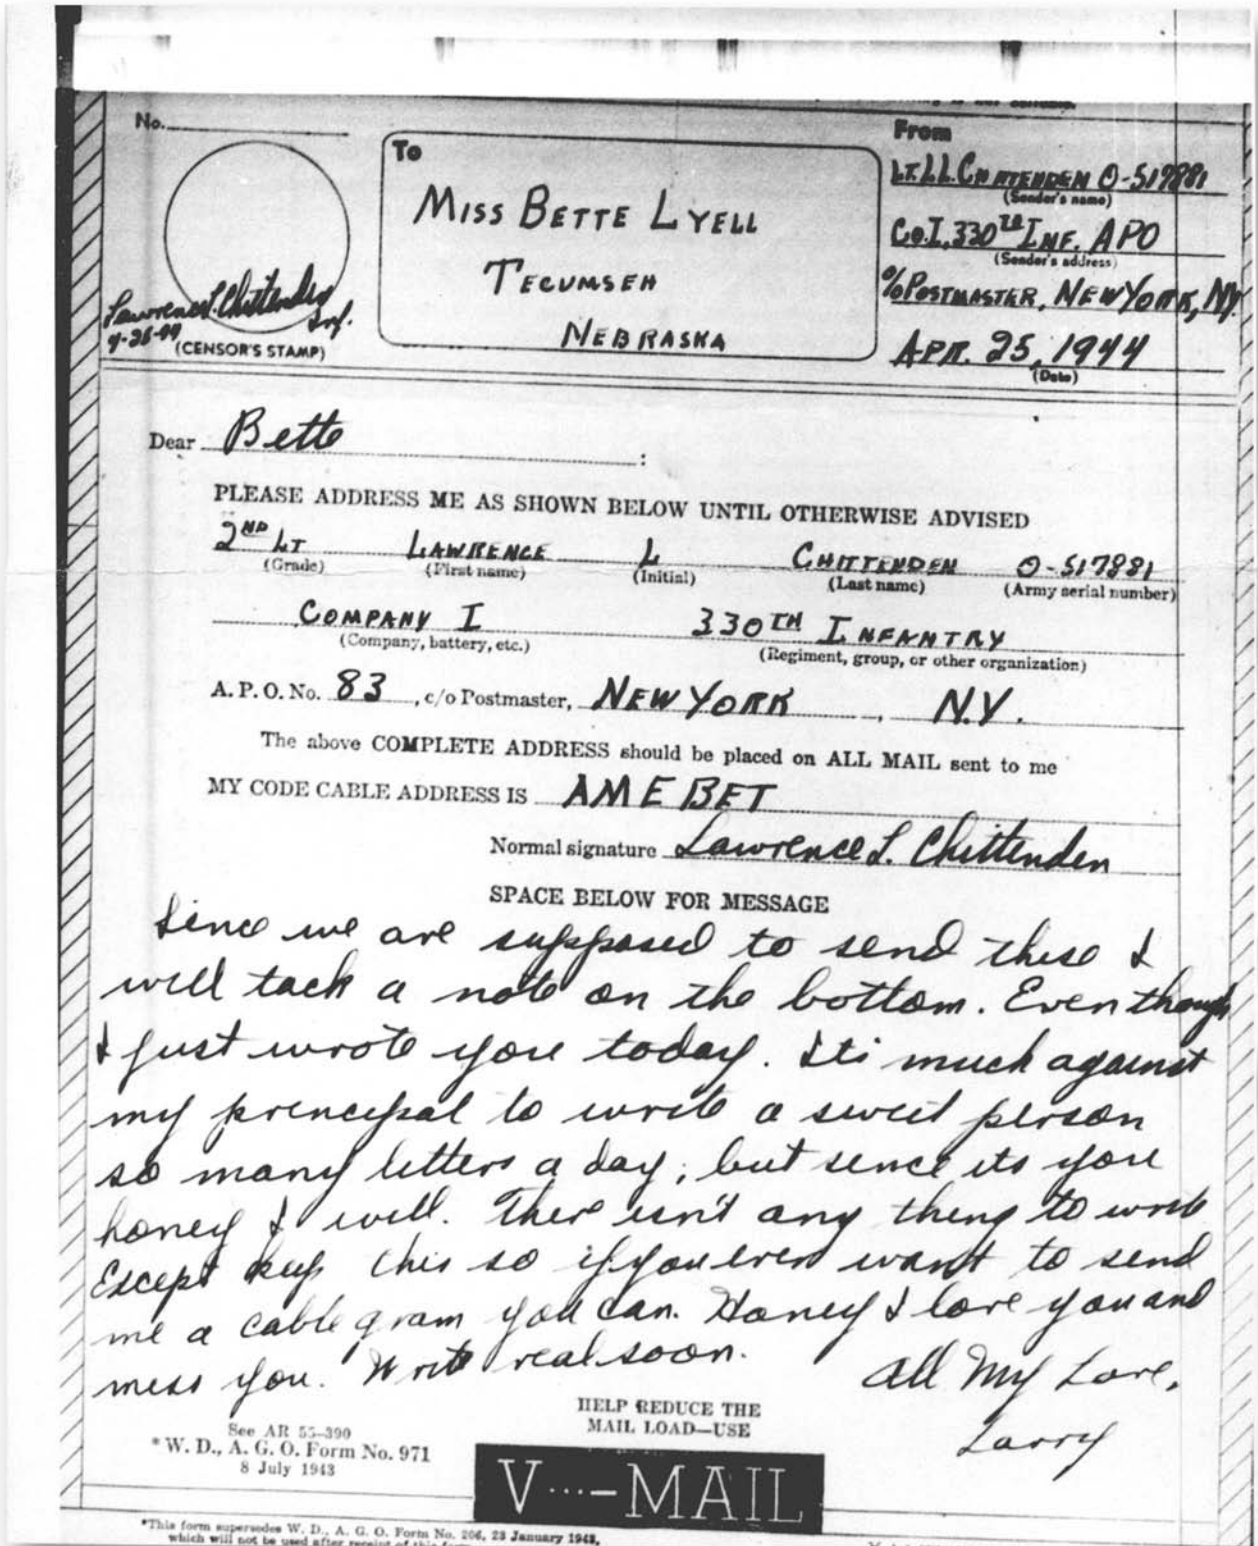 No.
To
MISS BETTE LYELL
TECUMSEH
NEBRASKA
From
LT. L.L. CHITTENDEN O-517881
(Sender's name)
CO. I, 330TH INF. APO
(Sender's address)
% POSTMASTER, NEW YORK, NY.
APR. 25, 1944
(Date)
Lawrence L. Chittenden
Inf.
4-26-44
(CENSOR'S STAMP)
Dear Bette :
PLEASE ADDRESS ME AS SHOWN BELOW UNTIL OTHERWISE ADVISED
2ND LT LAWRENCE L CHITTENDEN O-517881
(Grade) (First name) (Initial) (Last name) (Army serial number)
COMPANY I 330TH INFANTRY
(Company, battery, etc.) (Regiment, group, or other organization)
A. P. O. No. 83, c/o Postmaster, NEW YORK, N.Y.
The above COMPLETE ADDRESS should be placed on ALL MAIL sent to me
MY CODE CABLE ADDRESS IS AMEBET
Normal signature Lawrence L. Chittenden
SPACE BELOW FOR MESSAGE
Since we are supposed to send these I
will tack a note on the bottom. Even though
I just wrote you today. Its much against
my principal to write a sweet person
so many letters a day, but since its you
honey I will. There isn't any thing to write
Except keep this so if you ever want to send
me a cable gram you can. Honey I love you and
miss you. Write real soon.
All My Love,
Larry
See AR 55-390
*W. D., A. G. O. Form No. 971
8 July 1943
HELP REDUCE THE
MAIL LOAD—USE
V···—MAIL
*This form supersedes W. D., A. G. O. Form No. 206, 23 January 1943,
which will not be used after receipt of this